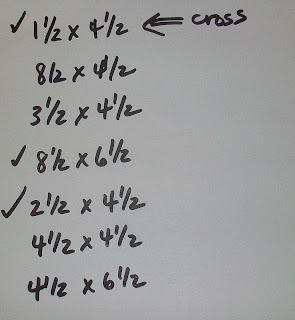 ✓ 1 1/2 x 4 1/2 ⇐ cross
8 1/2 x 4 1/2
3 1/2 x 4 1/2
✓ 8 1/2 x 6 1/2
✓ 2 1/2 x 4 1/2
4 1/2 x 4 1/2
4 1/2 x 6 1/2